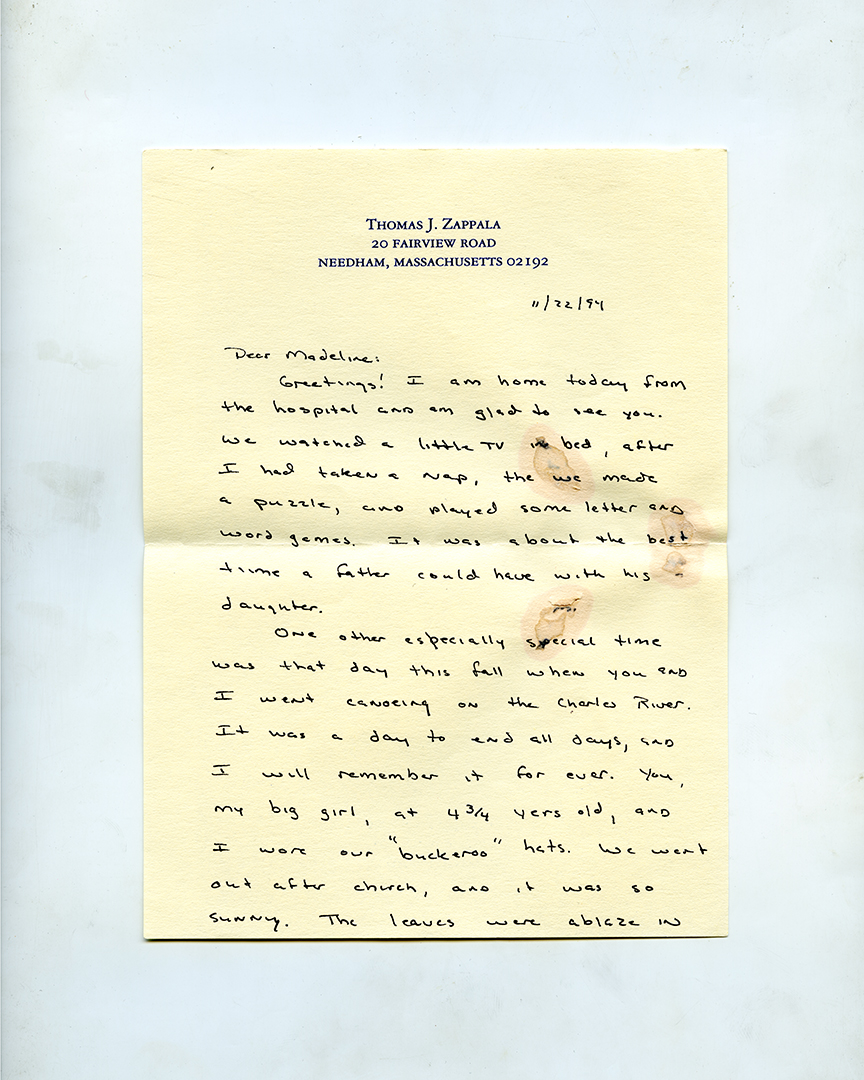 Thomas J. Zappala
20 Fairview Road
Needham, Massachusetts 02192
11/22/94
Dear Madeline:
Greetings! I am home today from
the hospital and am glad to see you.
We watched a little TV in bed, after
I had taken a nap, the we made
a puzzle, and played some letter and
word games. It was about the best
time a father could have with his
daughter.
One other especially special time
was that day this fall when you and
I went canoeing on the Charles River.
It was a day to end all days, and
I will remember it for ever. You,
my big girl, at 4 3/4 yers old, and
I wore our "buckeroo" hats. We went
out after church, and it was so
sunny. The leaves were ablaze in